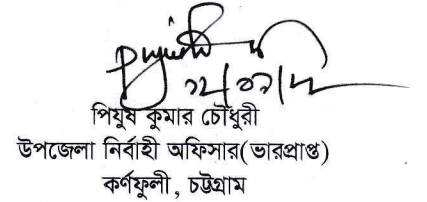 পিযুষ কুমার চৌধুরী
উপজেলা নির্বাহী অফিসার(ভারপ্রাপ্ত)
কর্ণফুলী , চট্টগ্রাম